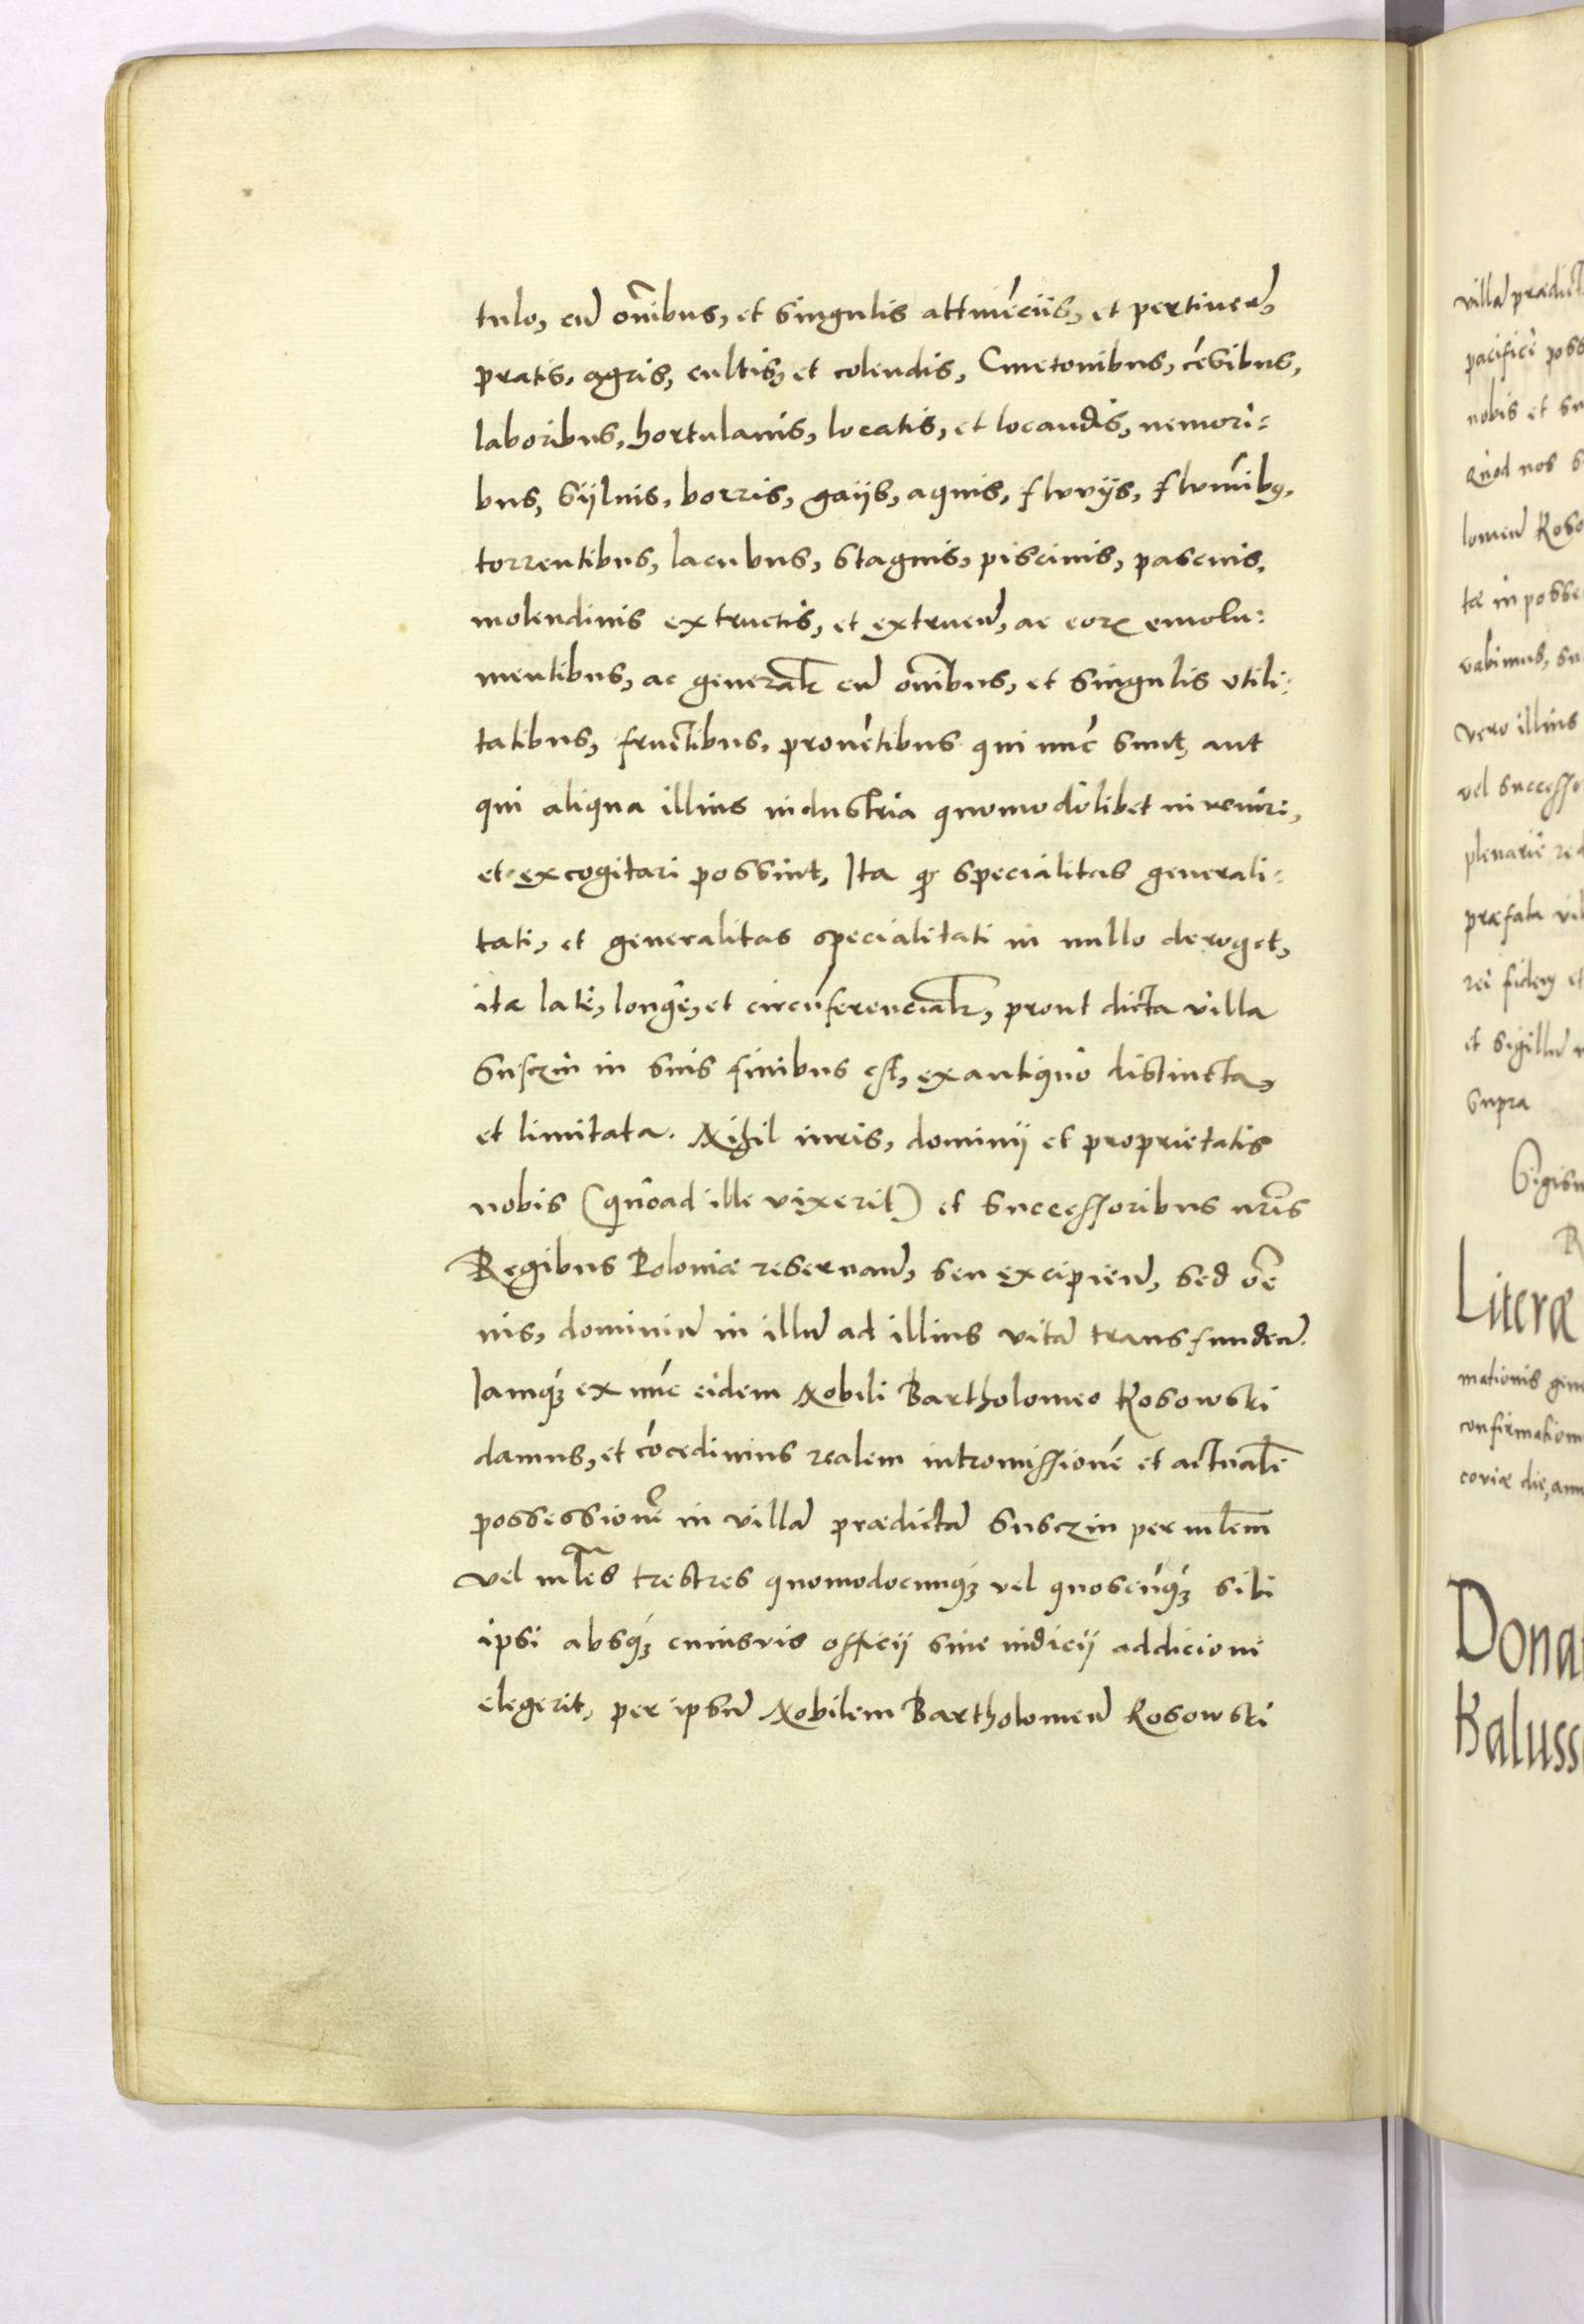 tulo, cũ oñibus, et singulis attinẽciis, et pertinen̄,
pratis, agris, cultis, et colendis, Cmetonibus, cẽsibus,
laboribus, hortulanis, locatis, et locandis, nemori:
bus, Sylvis, borris, gaijs, aquis, fluvijs, fluminibꝰ,
torrentibus, lacubus, stagnis, piscinis, pascuis,
molendinis extructis, et extruen̄, ac eorꝝ emolu:
mentibus, ac generalr̄ cũ oñibus, et singulis utili:
tatibus, fructibus, provẽtibus qui nũc sunt, aut
qui aliqua illius industria quomodolibet inveniri,
et excogitari possint, Ita ꝙ specialitas generali:
tati, et generalitas specialitati in nullo deroget,
ita latè, longè, et circũferencialr̄, prout dicta villa
Susczin in suis finibus est, ex antiquo distincta,
et limitata. Nihil iuris, dominij et proprietatis
nobis (quoad ille vixerit) et successoribus nr̃is
Regibus Poloniæ reservan̄, seu excipien̄, sed oẽ
ius, dominiũ in illũ ad illius vitã transfunden̄.
Iamqꝫ ex nũc eidem Nobili Bartholomeo Kosowski
damus, et cõcedimus realem intromissionẽ et actualẽ
possessionẽ in villã prædictã Susczin per mlem̄
vel mles̄ trestres quomodocunqꝫ vel quoscũqꝫ sibi
ipsi absqꝫ cuiusvis officij sive iudicij addicione
elegerit, per ipsũ Nobilem Bartholomeũ Kosowski
villã prædict
pacificè poss
nobis et su
Quod nos s
lomeũ Koso
tæ in posse
vabimus, su
vero illius
vel successo
plenariè re
præfata vil
rei fidem et
et sigillũ
supra
Sigism
R
Literæ
mationis gene
confirmation
coviæ die, ann
Dona
Kaluss